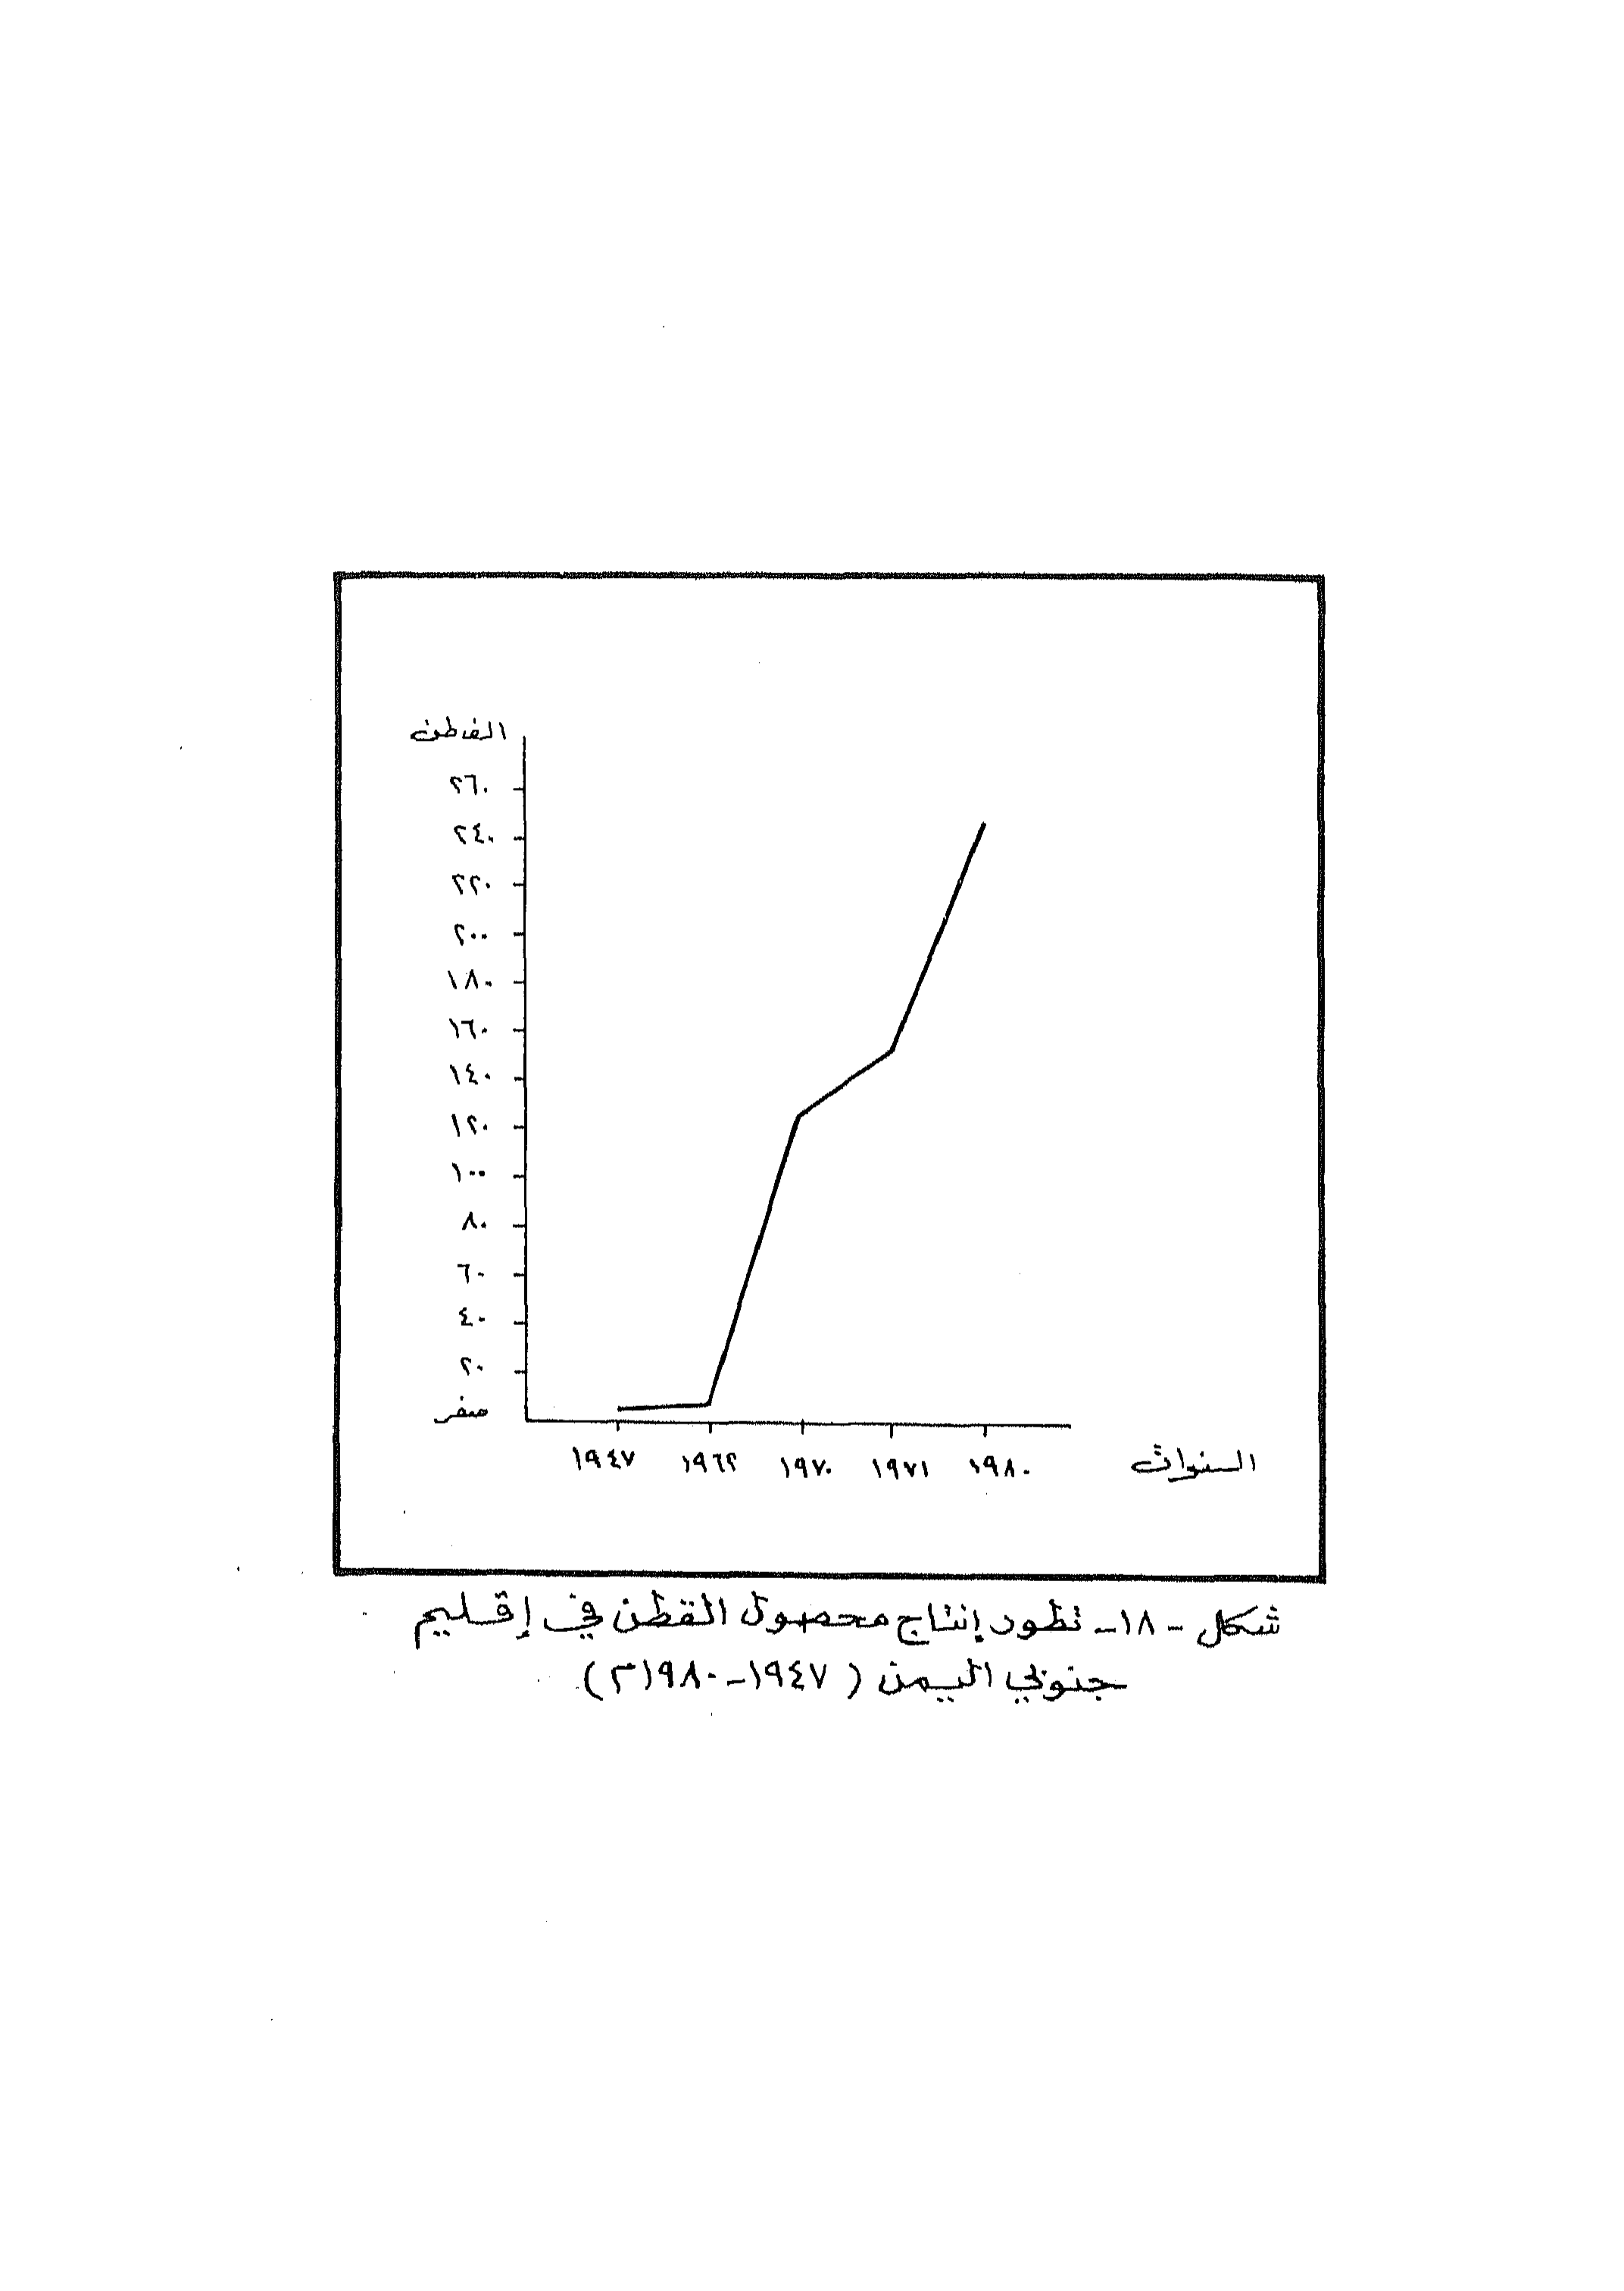 القطن
٢٦٠
٢٤٠
٢٢٠
٢٠٠
١٨٠
١٦٠
١٤٠
١٢٠
١٠٠
٨٠
٦٠
٤٠
٢٠
صفر
١٩٤٧ ١٩٦٢ ١٩٧٠ ١٩٧١ ١٩٨٠ السنوات
شكل -١٨- تطور إنتاج محصول القطن في إقليم
جنوبي اليمن (١٩٤٧-١٩٨٠م)